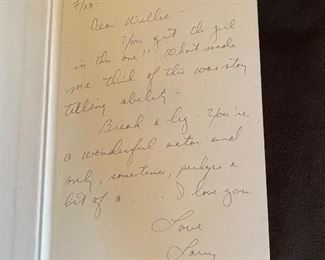 7/29 -
Dear Willie -
You get the girl
in this one!! What made
me think of this was story
telling ability -
Break a leg - You're
a wonderful actor and
only, sometimes, perhaps a
bit of a ..... I love you
Love
Larry